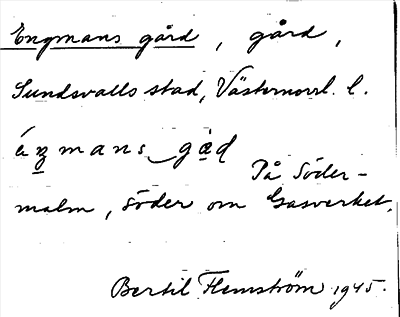 Engmans gård, gård,
Sundsvalls stad, Västernorrl. l.
áŋmans gɑd
På Söder-
malm, söder om Gasverket.
Bertil Flemström 1945.